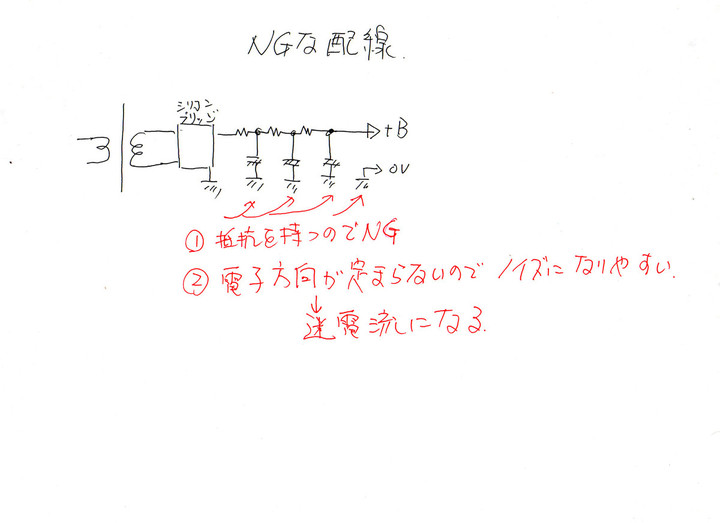 NGな配線.
シリコン
ブリッジ
+B
0V
① 抵抗を持つのでNG
② 電子方向が定まらないのでノイズになりやすい.
迷電流になる.